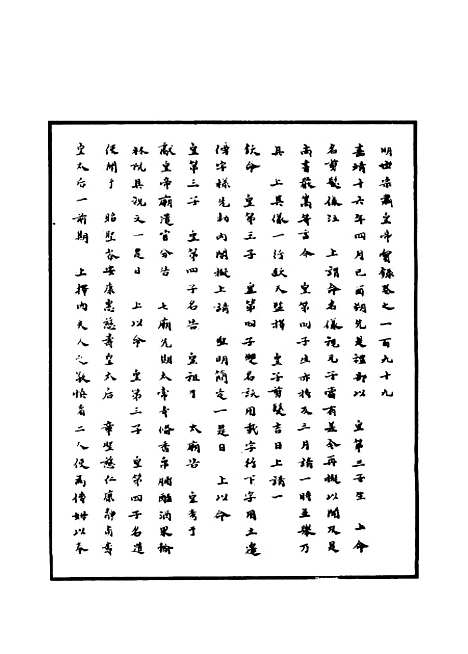 明世宗肅皇帝實錄卷之一百九十九
嘉靖十六年四月己酉朔先是禮部以 皇第三子生 上命
名剪髮儀注 上謂命名儀視元子當有差令再擬以聞及是
尚書嚴嵩等言今 皇第四子生亦將及三月請一時並舉乃
具 上具儀一行欽天監擇 皇子剪髮吉日上請一
欽命 皇第三子 皇第四子雙名訣用載字行下字用土邊
傍字樣先勅內閣擬上請 聖明簡定一是日 上以命
皇第三子 皇第四子名告 皇祖于 太廟告 皇考于
獻皇帝廟遣官分告 七廟先期太常寺備香帛脯醢酒果翰
林院具祝文一是日 上以命 皇第三子 皇第四子名遣
使聞于 昭聖恭安康惠慈壽皇太后 章聖慈仁康靜貞壽
皇太后一前期 上擇內夫人之敬慎者二人使為傅姆以奉